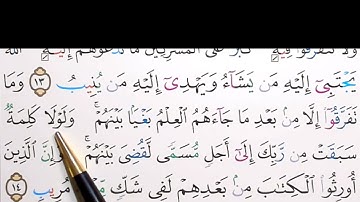 وَلَا تَتَفَرَّقُوا۟ فِيهِ ۚ كَبُرَ عَلَى ٱلْمُشْرِكِينَ مَا تَدْعُوهُمْ إِلَيْهِ ۚ ٱللَّهُ
يَجْتَبِىٓ إِلَيْهِ مَن يَشَآءُ وَيَهْدِىٓ إِلَيْهِ مَن يُنِيبُ ١٣ وَمَا
تَفَرَّقُوٓا۟ إِلَّا مِنۢ بَعْدِ مَا جَآءَهُمُ ٱلْعِلْمُ بَغْيًۢا بَيْنَهُمْ ۚ وَلَوْلَا كَلِمَةٌ
سَبَقَتْ مِن رَّبِّكَ إِلَىٰٓ أَجَلٍ مُّسَمًّى لَّقُضِىَ بَيْنَهُمْ ۚ وَإِنَّ ٱلَّذِينَ
أُورِثُوا۟ ٱلْكِتَـٰبَ مِنۢ بَعْدِهِمْ لَفِى شَكٍّ مِّنْهُ مُرِيبٍ ١٤